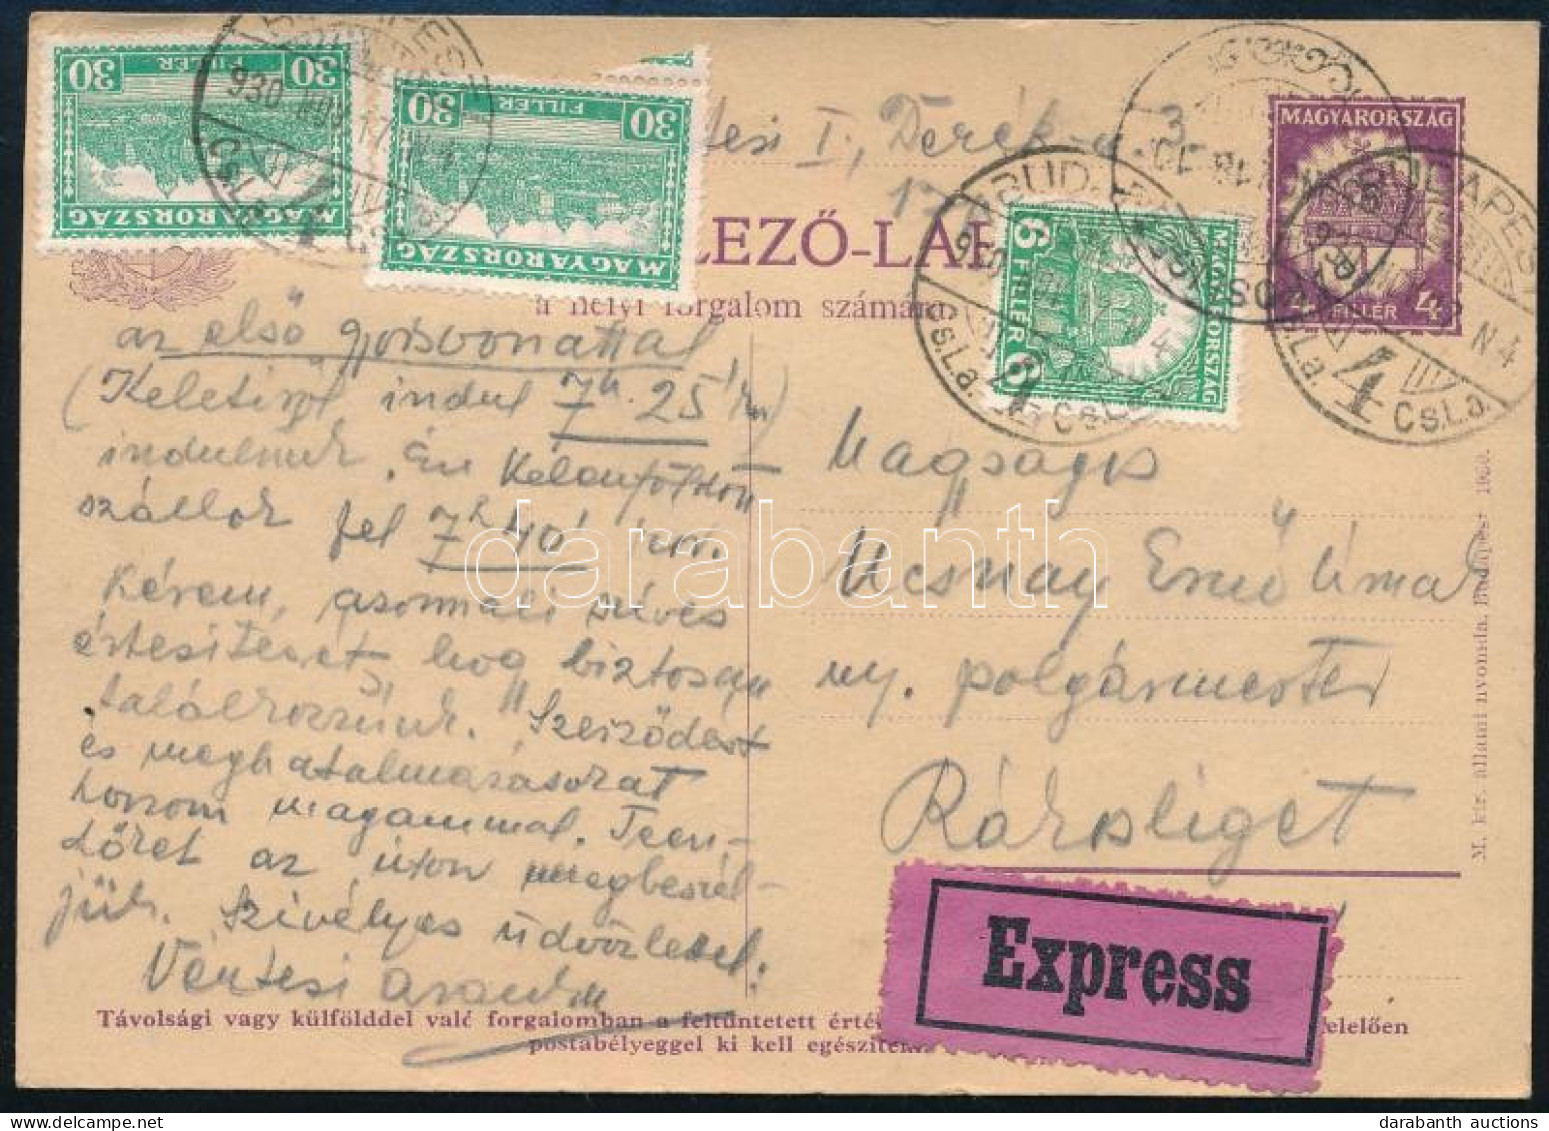 30 FILLÉR 30
MAGYARORSZÁG
30 FILLÉR 30
MAGYARORSZÁG
930 NOV 17
CsLa.
tesi I, Derék-u
17
LEZŐ-LAP
a helyi forgalom számára
MAGYARORSZÁG
6 FILLÉR 6
BUDAPEST
4
CsLa.
MAGYARORSZÁG
4 FILLÉR 4
BUDAPEST
N4
4
CsLa.
az első gyorsvonattal
(Keletiről indul 7h 25'kor)
indulunk. Én Kelenföldön
szállok fel 7h 40' kor.
Kérem, azonnali szíves
értesítését, hogy biztosan
találkozzunk. Szerződést
és meghatalmazásokat
hozom magammal. Teen-
dőket az úton megbeszél-
jük. Szívélyes üdvözlettel:
Vértesi
Nagyságos
Ucsnay Ernő Úrnak
ny. polgármester
Rákosliget
darabanth
Express
M. kir. állami nyomda, Budapest 1930.
Távolsági vagy külfölddel való forgalomban a feltüntetett érté elelően
postabélyeggel ki kell egészíteni.
darabanth auctions